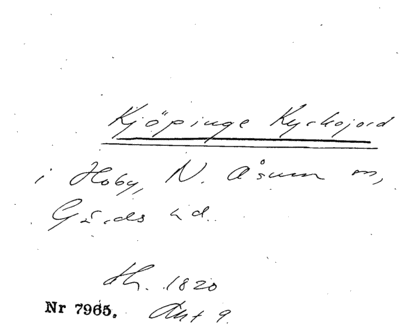 Kjöpinge Kyrkojord
i Hoby, N. Åsum m,
Gärds hd.
Ah. 1820
Nr 7965. Akt 9.